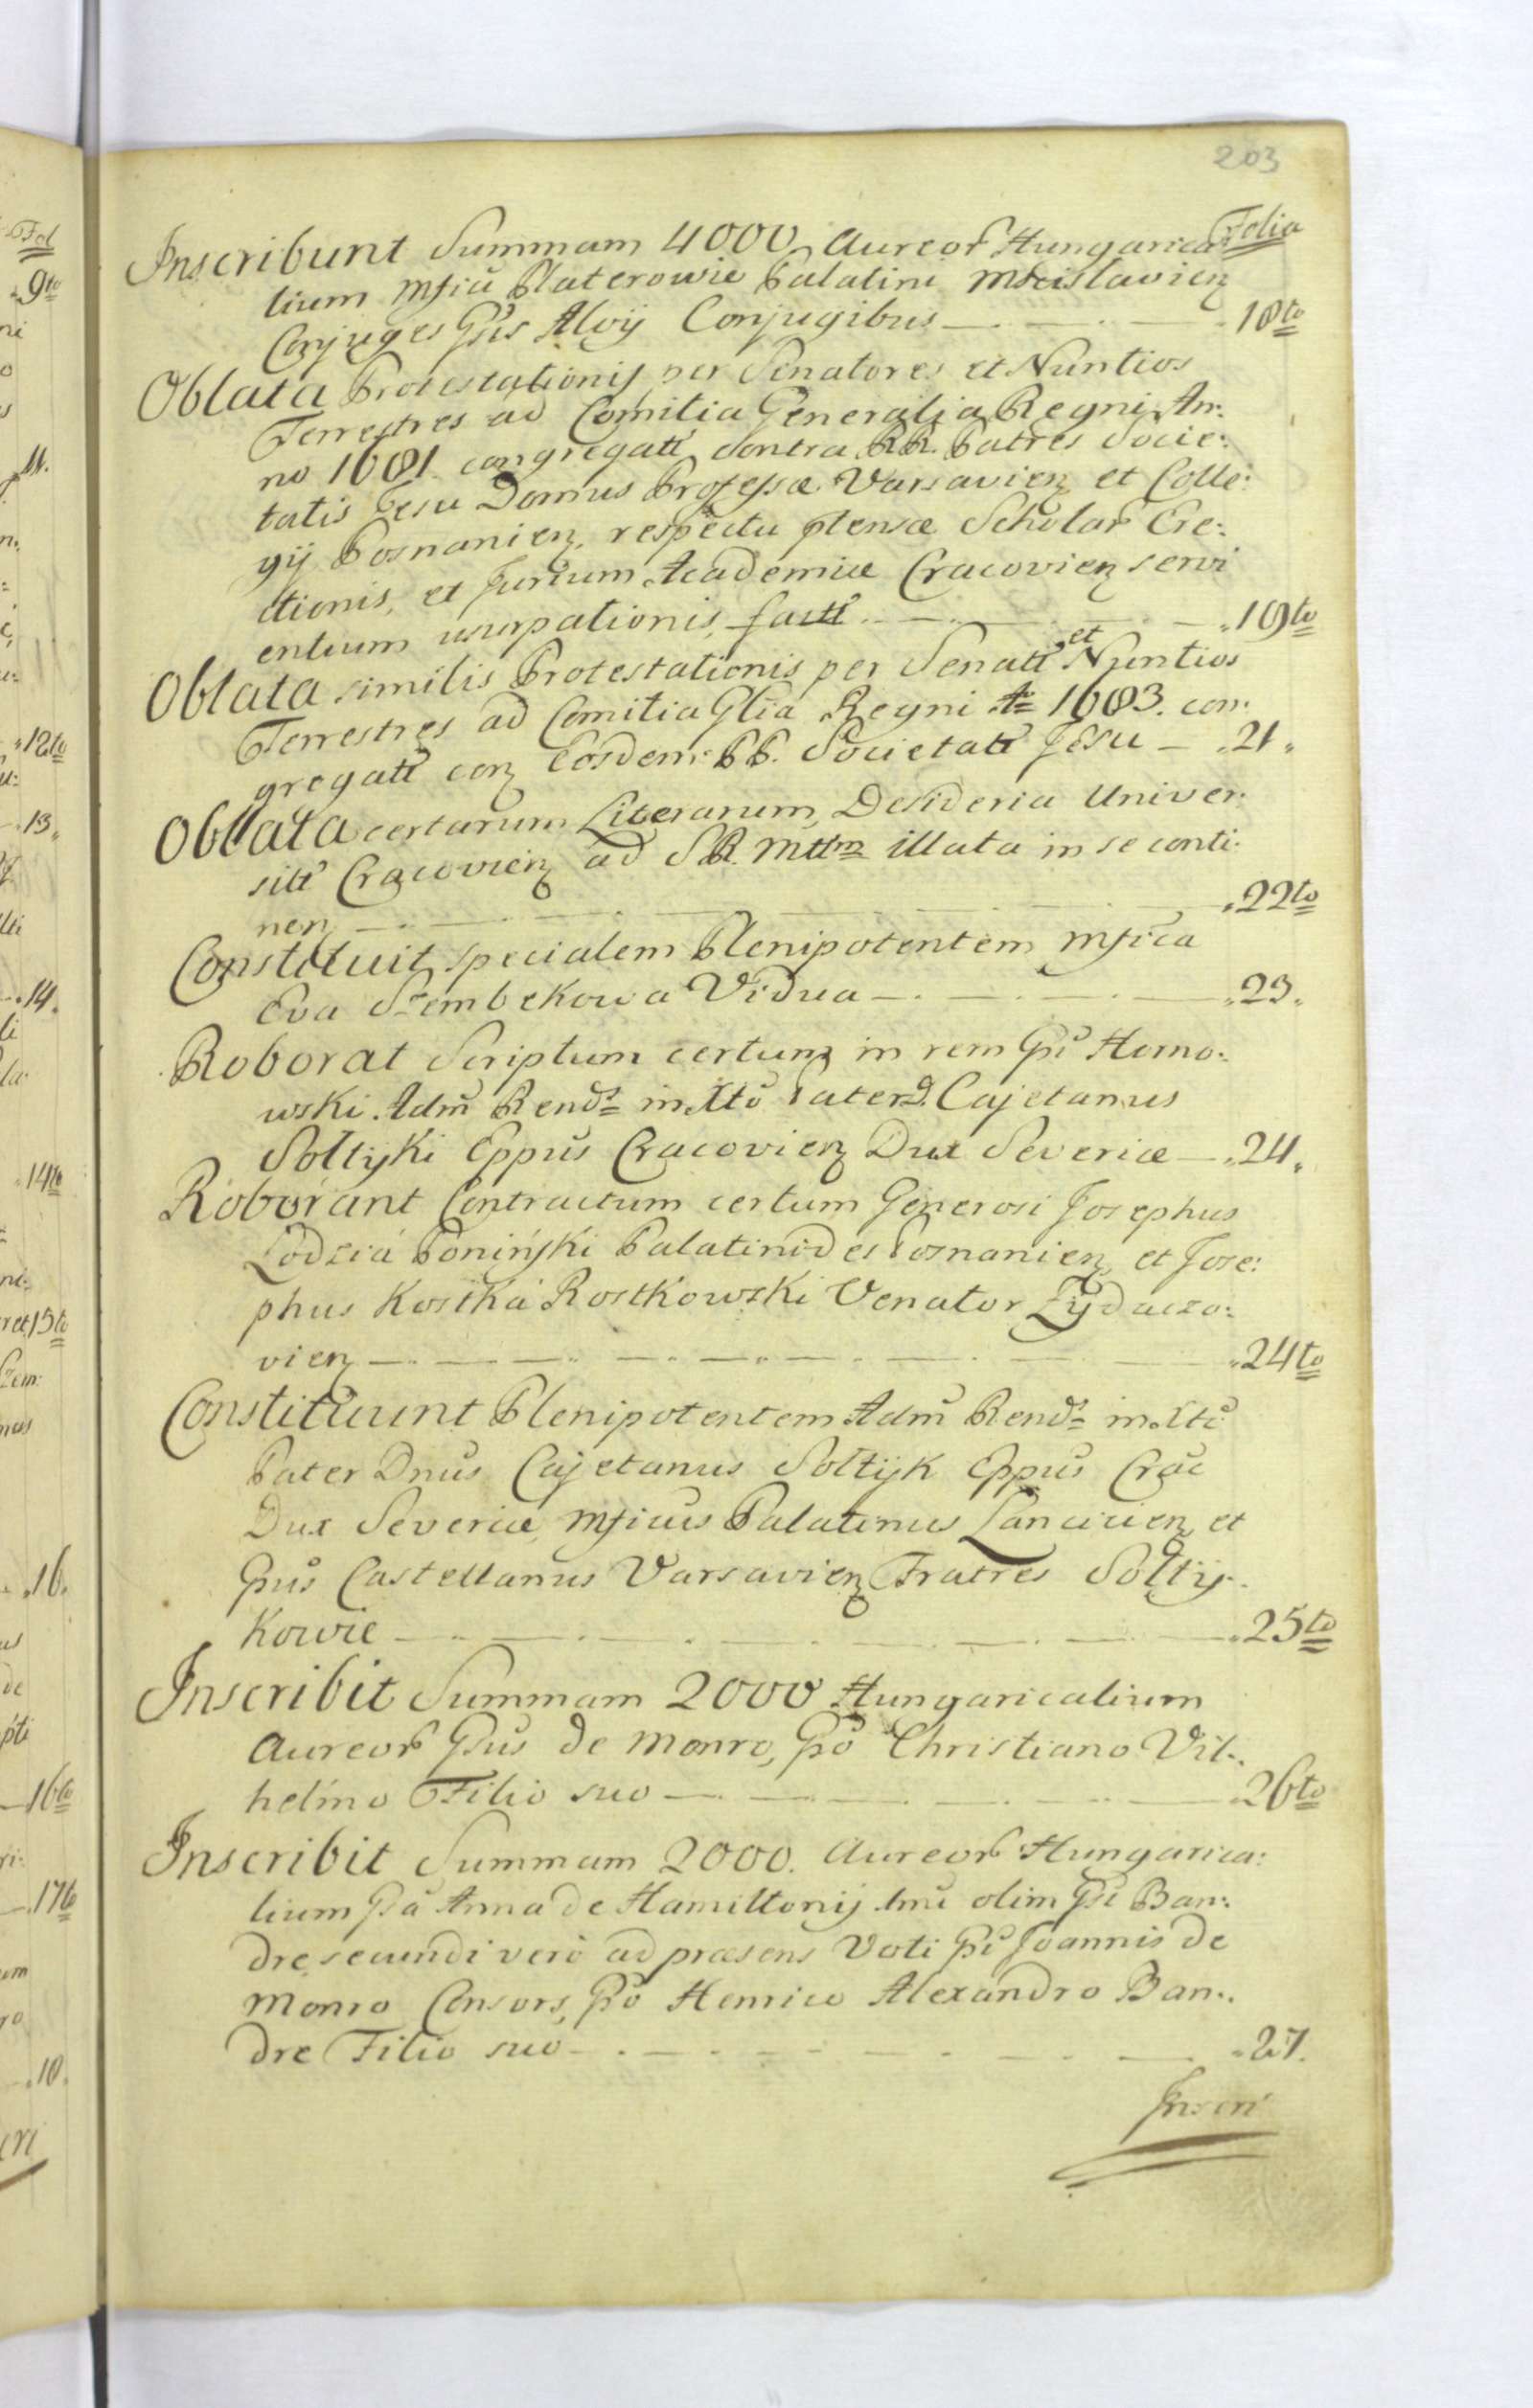 203
Folia
Inscribunt Summam 4000 Aureor Hungarica:
lium Mfici Platerowie Palatini Mscislavien
Conjuges Gsis Aloij Conjugibus — 18to
Oblata Protestationis per Senatores et Nuntios
Terrestres ad Comitia Generalia Regni An:
no 1681. congregat contra RR. Patres Socie:
tatis Jesu Domus Professæ Varsavien et Colle:
gij Posnanien, respectu ptensæ Scholar Ere:
ctionis, et Jurium Academiæ Cracovien servi
entium usurpationis, fact — 19to
Oblata similis Protestationis per Senat et Nuntios
Terrestres ad Comitia Glia Regni Ao 1683. con:
gregat con Eosdem PP. Societat Jesu — 21.
Oblata certarum Literarum, Desideria Univer:
sit Cracovien ad SR. Mttm illata in se conti:
nen — 22to
Constituit specialem Plenipotentem Mfica
Eva Szembekowa Vidua — 23.
Roborat Scriptum certum in rem Gsi Homo:
wski Adm Rends in Xto Pater D. Cajetanus
Sołtyki Eppus Cracovien Dux Severiæ — 24.
Roborant Contractum certum Generosi Josephus
Łodzia Poniński Palatinides Posnanien et Jose:
phus Kostka Rostkowski Venator Zydaczo:
vien — 24to
Constituunt Plenipotentem Adm Rends in Xto
Pater Dnus Cajetanus Sołtyk Eppus Crac
Dux Severiæ, Mficus Palatinus Lancicien et
Gsus Castellanus Varsavien Fratres Sołty:
kowie — 25to
Inscribit Summam 2000 Hungaricalium
Aureor Gsus de Monro, Gso Christiano Vil:
helmo Filio suo — 26to
Inscribit Summam 2000. Aureor Hungarica:
lium Gsa Anna de Hamiltonij 1mi olim Gsi Ban:
dre secundi vero ad præsens Voti Gsi Joannis de
Monro Consors, Gso Henrico Alexandro Ban:
dre Filio suo — 27.
Inscri